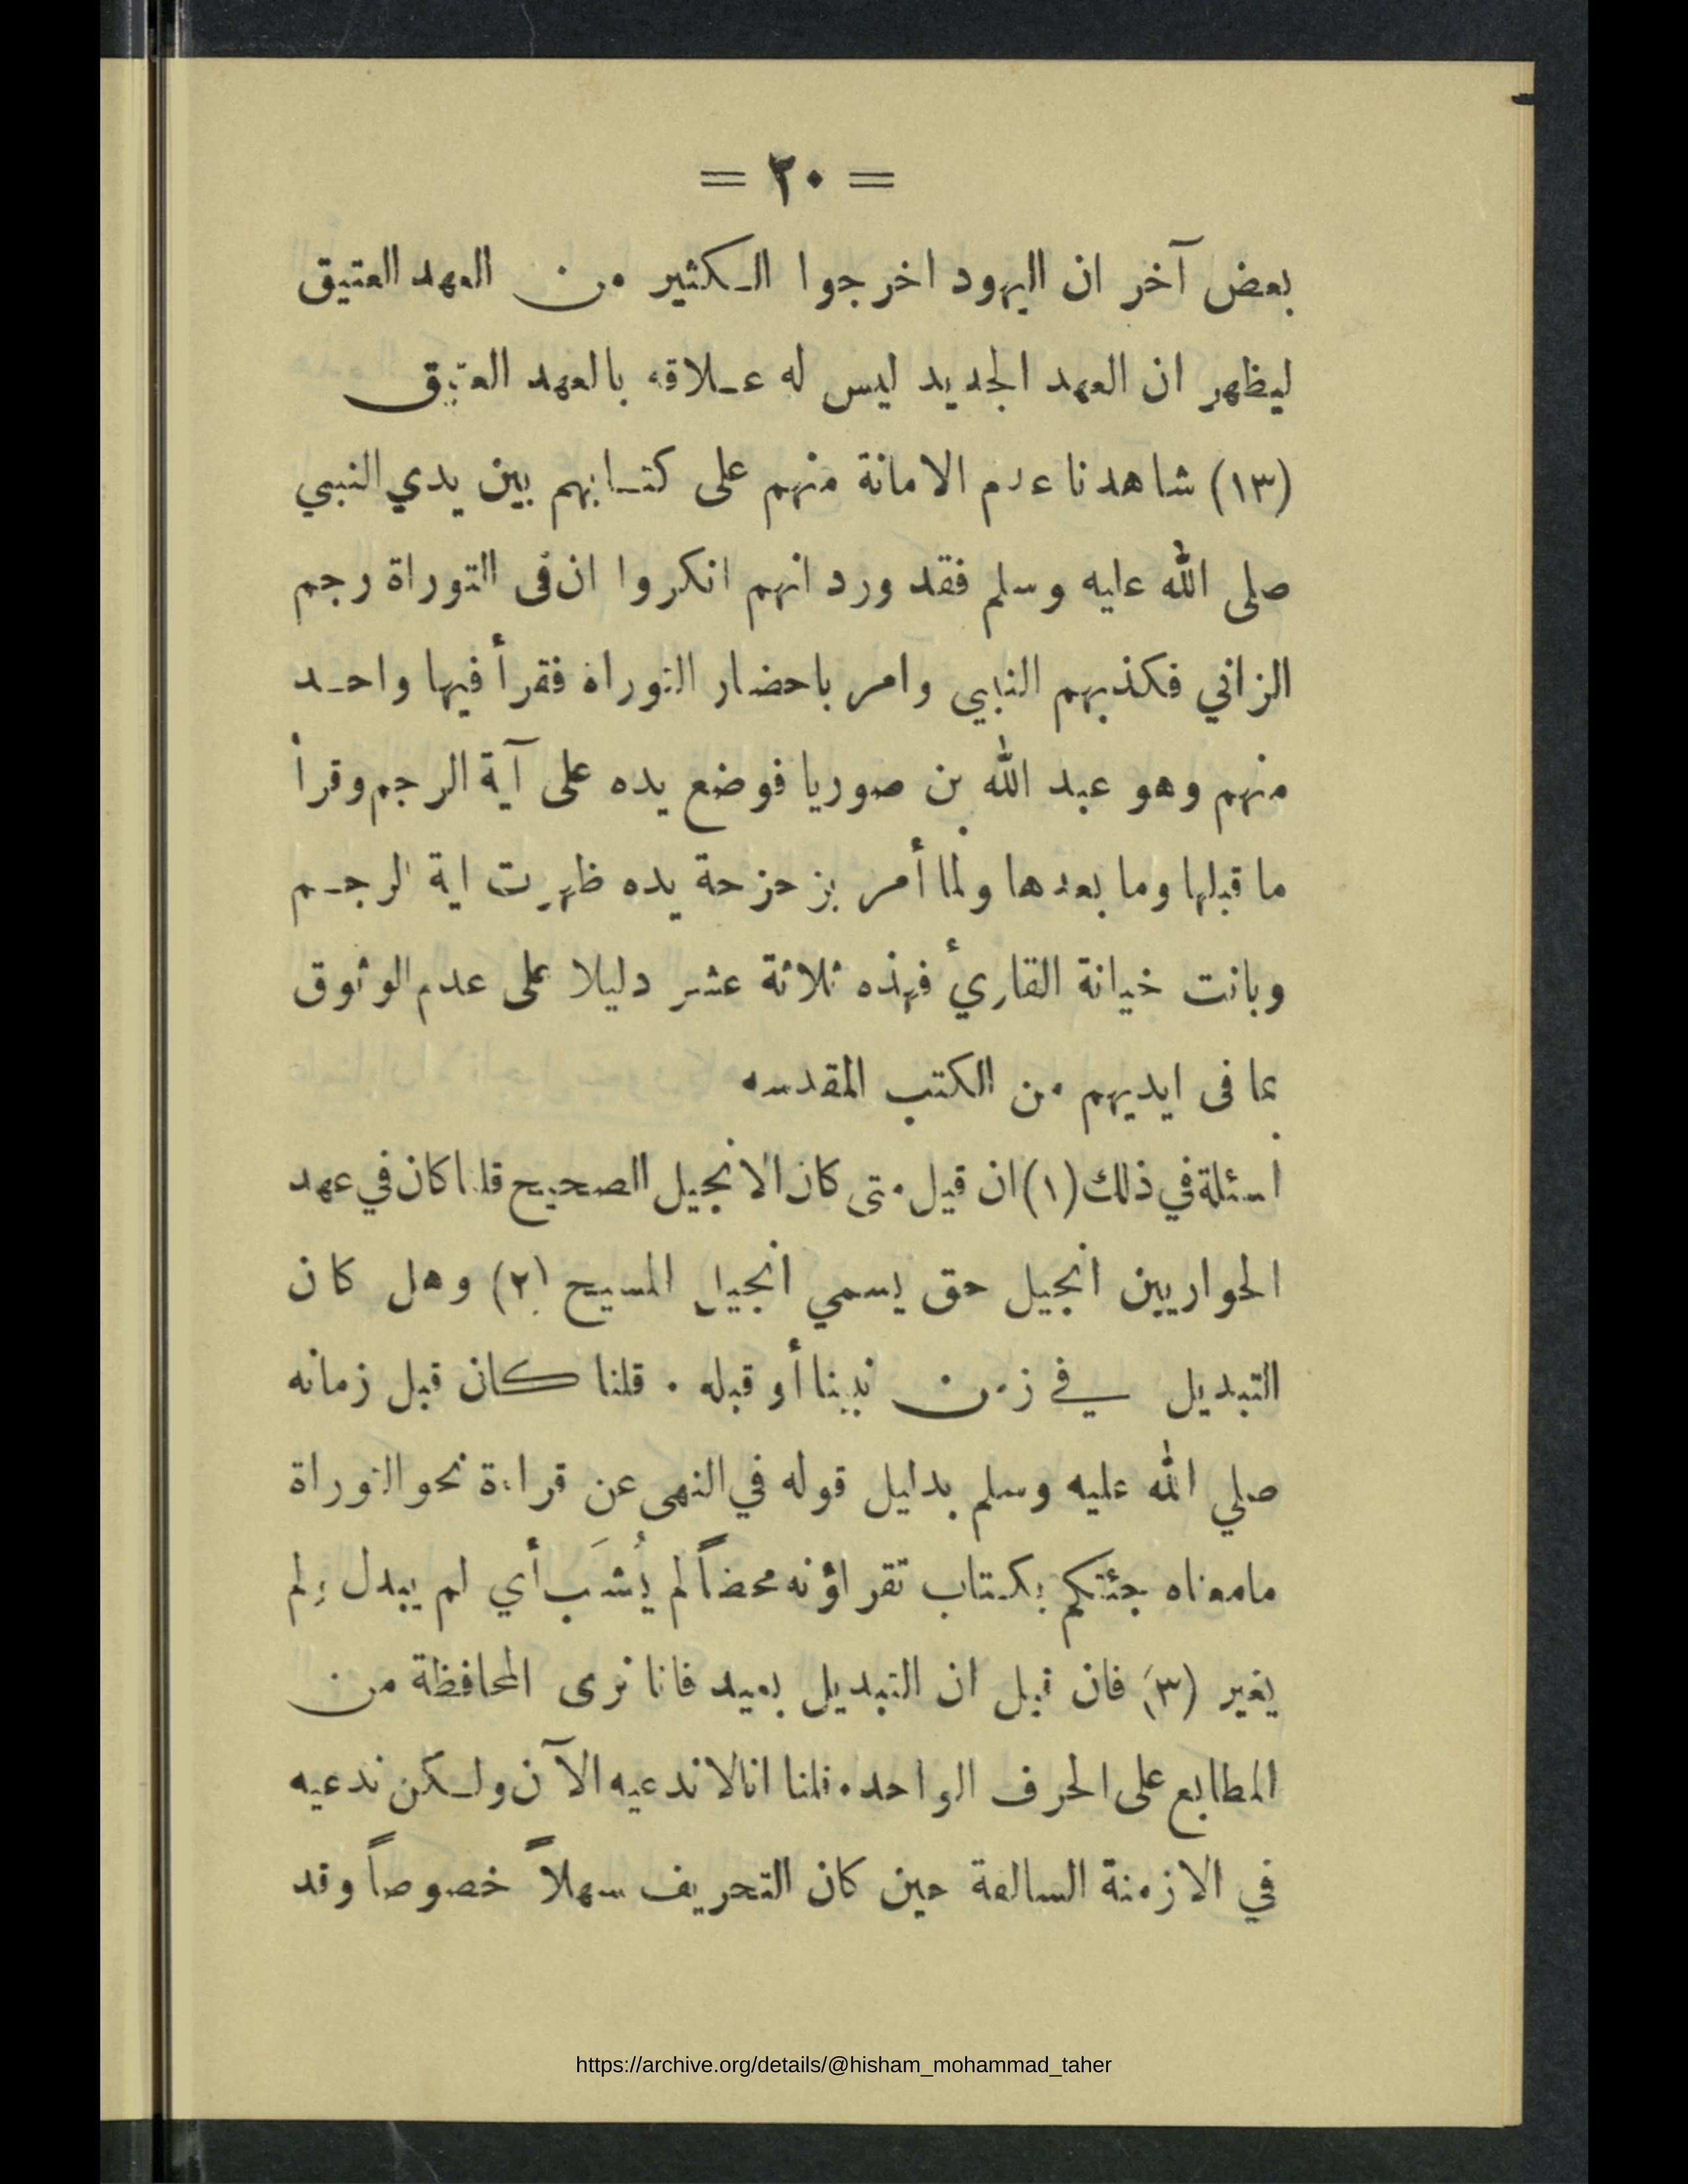 = ٢٠ =
بعض آخر ان اليهود اخرجوا الكثير من العهد العتيق
ليظهر ان العهد الجديد ليس له علاقه بالعهد العتيق
(١٣) شاهدنا عدم الامانة منهم على كتابهم بين يدي النبي
صلى الله عليه وسلم فقد ورد انهم انكروا ان فى التوراة رجم
الزاني فكذبهم النبي وامر باحضار التوراة فقرأ فيها واحد
منهم وهو عبد الله بن صوريا فوضع يده على آية الرجم وقرأ
ما قبلها وما بعدها ولما أمر بزحزحة يده ظهرت اية الرجم
وبانت خيانة القاريء فهذه ثلاثة عشر دليلا على عدم الوثوق
بما فى ايديهم من الكتب المقدسه
اسئلة في ذلك (١) ان قيل متى كان الانجيل الصحيح قلنا كان في عهد
الحواريين انجيل حق يسمي انجيل المسيح (٢) وهل كان
التبديل في زمن نبينا أو قبله . قلنا كان قبل زمانه
صلي الله عليه وسلم بدليل قوله في النهى عن قراءة نحو التوراة
مامعناه جئتكم بكتاب تقراؤنه محضاً لم يُشَب أي لم يبدل ولم
يغير (٣) فان قيل ان التبديل بعيد فانا نرى المحافظة من
المطابع على الحرف الواحد . قلنا انا لا ندعيه الآن ولكن ندعيه
في الازمنة السالفة حين كان التحريف سهلاً خصوصاً وقد
https://archive.org/details/@hisham_mohammad_taher